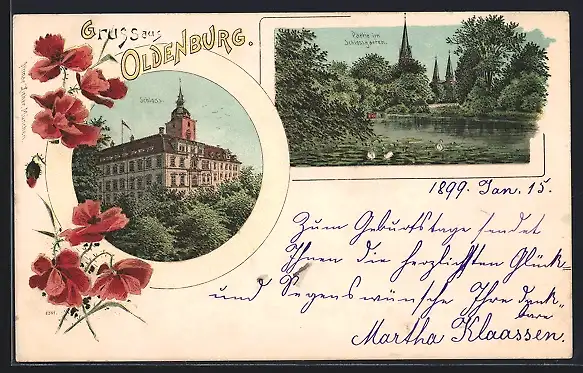 Gruss aus
OLDENBURG.
Partie im
Schlossgarten.
Schloss.
1899. Jan. 15.
Zum Geburtstage sendet
Ihnen die herzlichsten Glück-
und Segenswünsche Ihre dank-
bare
Martha Klaassen.